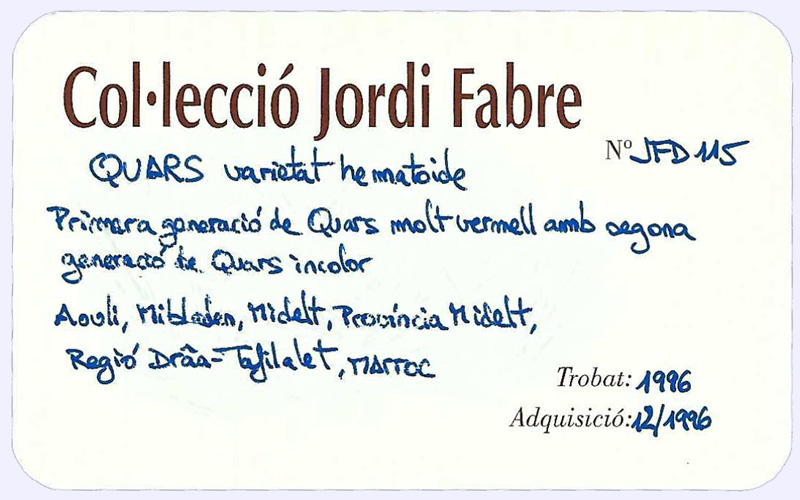 Col·lecció Jordi Fabre
Nº JFD 115
QUARS varietat hematoide
Primera generació de Quars molt vermell amb segona
generació de Quars incolor
Aouli, Mibladen, Midelt, Província Midelt,
Regió Drâa-Tafilalet, MARROC
Trobat: 1996
Adquisició: 12/1996